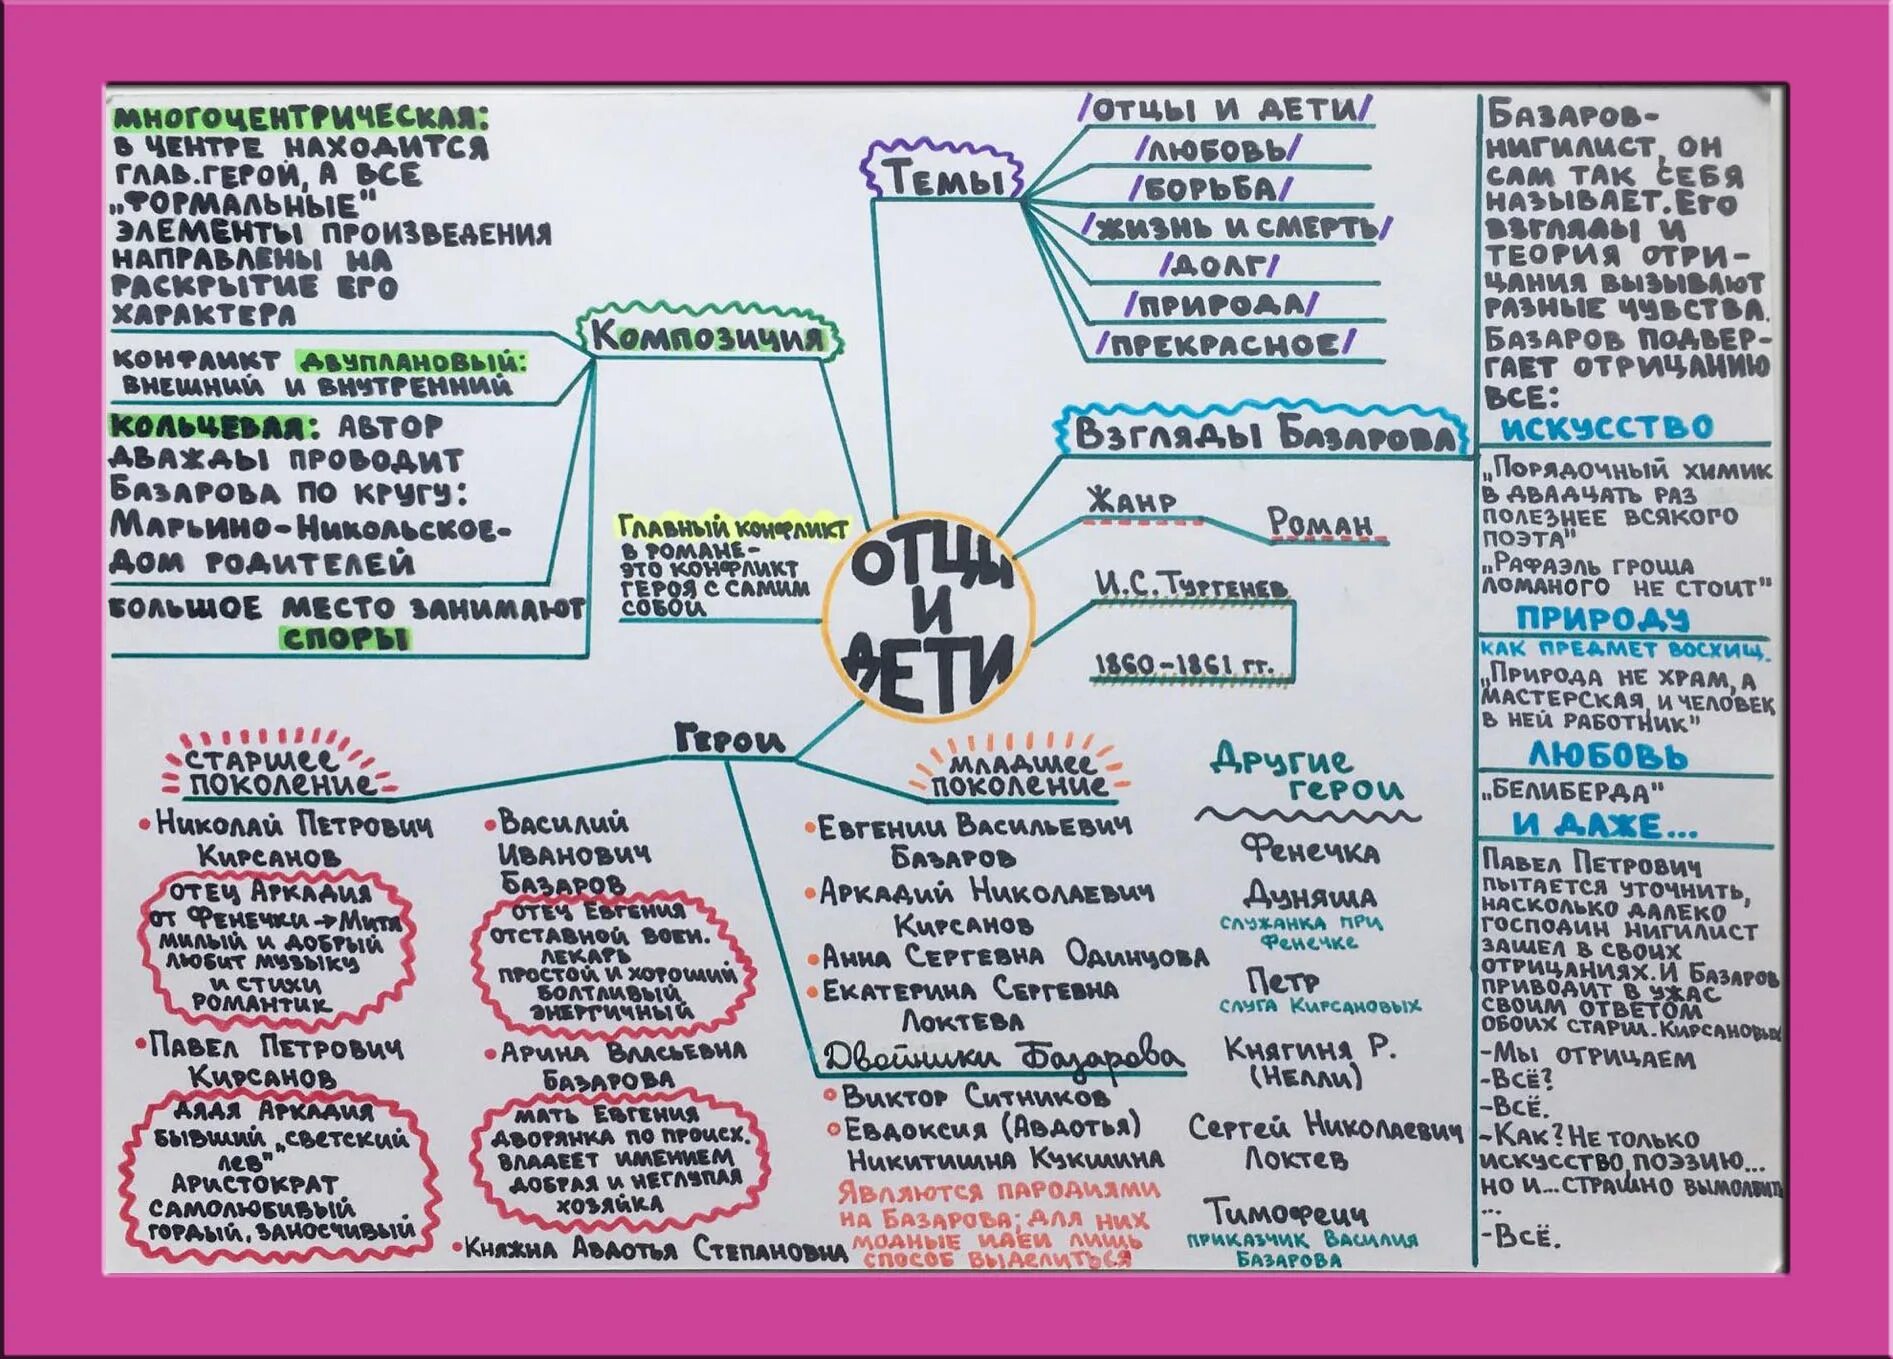 МНОГОЦЕНТРИЧЕСКАЯ:
В ЦЕНТРЕ НАХОДИТСЯ
ГЛАВ.ГЕРОЙ, А ВСЕ
„ФОРМАЛЬНЫЕ"
ЭЛЕМЕНТЫ ПРОИЗВЕДЕНИЯ
НАПРАВЛЕНЫ НА
РАСКРЫТИЕ ЕГО
ХАРАКТЕРА
КОНФЛИКТ ДВУПЛАНОВЫЙ:
ВНЕШНИЙ И ВНУТРЕННИЙ
КОЛЬЦЕВАЯ: АВТОР
ДВАЖДЫ ПРОВОДИТ
БАЗАРОВА ПО КРУГУ:
МАРЬИНО-НИКОЛЬСКОЕ-
ДОМ РОДИТЕЛЕЙ
БОЛЬШОЕ МЕСТО ЗАНИМАЮТ
СПОРЫ
КОМПОЗИЦИЯ
ГЛАВНЫЙ КОНФЛИКТ
В РОМАНЕ-
ЭТО КОНФЛИКТ
ГЕРОЯ С САМИМ
СОБОЙ
ТЕМЫ
/ОТЦЫ И ДЕТИ/
/ЛЮБОВЬ/
/БОРЬБА/
/ЖИЗНЬ И СМЕРТЬ/
/ДОЛГ/
/ПРИРОДА/
/ПРЕКРАСНОЕ/
ВЗГЛЯДЫ БАЗАРОВА
ЖАНР
РОМАН
И.С.ТУРГЕНЕВ
1860-1861 гг.
ОТЦЫ
И
ДЕТИ
БАЗАРОВ-
НИГИЛИСТ, ОН
САМ ТАК СЕБЯ
НАЗЫВАЕТ. ЕГО
ВЗГЛЯДЫ И
ТЕОРИЯ ОТРИ-
ЦАНИЯ ВЫЗЫВАЮТ
РАЗНЫЕ ЧУВСТВА.
БАЗАРОВ ПОДВЕР-
ГАЕТ ОТРИЦАНИЮ
ВСЕ:
ИСКУССТВО
„ПОРЯДОЧНЫЙ ХИМИК
В ДВАДЦАТЬ РАЗ
ПОЛЕЗНЕЕ ВСЯКОГО
ПОЭТА"
„РАФАЭЛЬ ГРОША
ЛОМАНОГО НЕ СТОИТ"
ПРИРОДУ
КАК ПРЕДМЕТ ВОСХИЩ.
„ПРИРОДА НЕ ХРАМ, А
МАСТЕРСКАЯ, И ЧЕЛОВЕК
В НЕЙ РАБОТНИК"
ЛЮБОВЬ
„БЕЛИБЕРДА"
И ДАЖЕ...
ПАВЕЛ ПЕТРОВИЧ
ПЫТАЕТСЯ УТОЧНИТЬ,
НАСКОЛЬКО ДАЛЕКО
ГОСПОДИН НИГИЛИСТ
ЗАШЕЛ В СВОИХ
ОТРИЦАНИЯХ. И БАЗАРОВ
ПРИВОДИТ В УЖАС
СВОИМ ОТВЕТОМ
ОБОИХ СТАРШ. КИРСАНОВЫХ
-МЫ ОТРИЦАЕМ
-ВСЁ?
-ВСЁ.
-КАК? НЕ ТОЛЬКО
ИСКУССТВО, ПОЭЗИЮ...
НО И...СТРАШНО ВЫМОЛВИТЬ
...
-ВСЁ.
ГЕРОИ
СТАРШЕЕ
ПОКОЛЕНИЕ
• НИКОЛАЙ ПЕТРОВИЧ
КИРСАНОВ
ОТЕЦ АРКАДИЯ
ОТ ФЕНЕЧКИ → МИТЯ
МИЛЫЙ И ДОБРЫЙ
ЛЮБИТ МУЗЫКУ
И СТИХИ
РОМАНТИК
• ПАВЕЛ ПЕТРОВИЧ
КИРСАНОВ
ДЯДЯ АРКАДИЯ
БЫВШИЙ „СВЕТСКИЙ
ЛЕВ"
АРИСТОКРАТ
САМОЛЮБИВЫЙ
ГОРДЫЙ, ЗАНОСЧИВЫЙ
• ВАСИЛИЙ
ИВАНОВИЧ
БАЗАРОВ
ОТЕЦ ЕВГЕНИЯ
ОТСТАВНОЙ ВОЕН.
ЛЕКАРЬ
ПРОСТОЙ И ХОРОШИЙ
БОЛТЛИВЫЙ
ЭНЕРГИЧНЫЙ
• АРИНА ВЛАСЬЕВНА
БАЗАРОВА
МАТЬ ЕВГЕНИЯ
ДВОРЯНКА ПО ПРОИСХ.
ВЛАДЕЕТ ИМЕНИЕМ
ДОБРАЯ И НЕГЛУПАЯ
ХОЗЯЙКА
• КНЯЖНА АВДОТЬЯ СТЕПАНОВНА
МЛАДШЕЕ
ПОКОЛЕНИЕ
• ЕВГЕНИЙ ВАСИЛЬЕВИЧ
БАЗАРОВ
• АРКАДИЙ НИКОЛАЕВИЧ
КИРСАНОВ
• АННА СЕРГЕВНА ОДИНЦОВА
• ЕКАТЕРИНА СЕРГЕВНА
ЛОКТЕВА
Двойники Базарова
• ВИКТОР СИТНИКОВ
• ЕВДОКСИЯ (АВДОТЬЯ)
НИКИТИШНА КУКШИНА
ЯВЛЯЮТСЯ ПАРОДИЯМИ
НА БАЗАРОВА; ДЛЯ НИХ
МОДНЫЕ ИДЕИ ЛИШЬ
СПОСОБ ВЫДЕЛИТЬСЯ
ДРУГИЕ
ГЕРОИ
ФЕНЕЧКА
ДУНЯША
СЛУЖАНКА ПРИ
ФЕНЕЧКЕ
ПЕТР
СЛУГА КИРСАНОВЫХ
КНЯГИНЯ Р.
(НЕЛЛИ)
СЕРГЕЙ НИКОЛАЕВИЧ
ЛОКТЕВ
ТИМОФЕИЧ
ПРИКАЗЧИК ВАСИЛИЯ
БАЗАРОВА